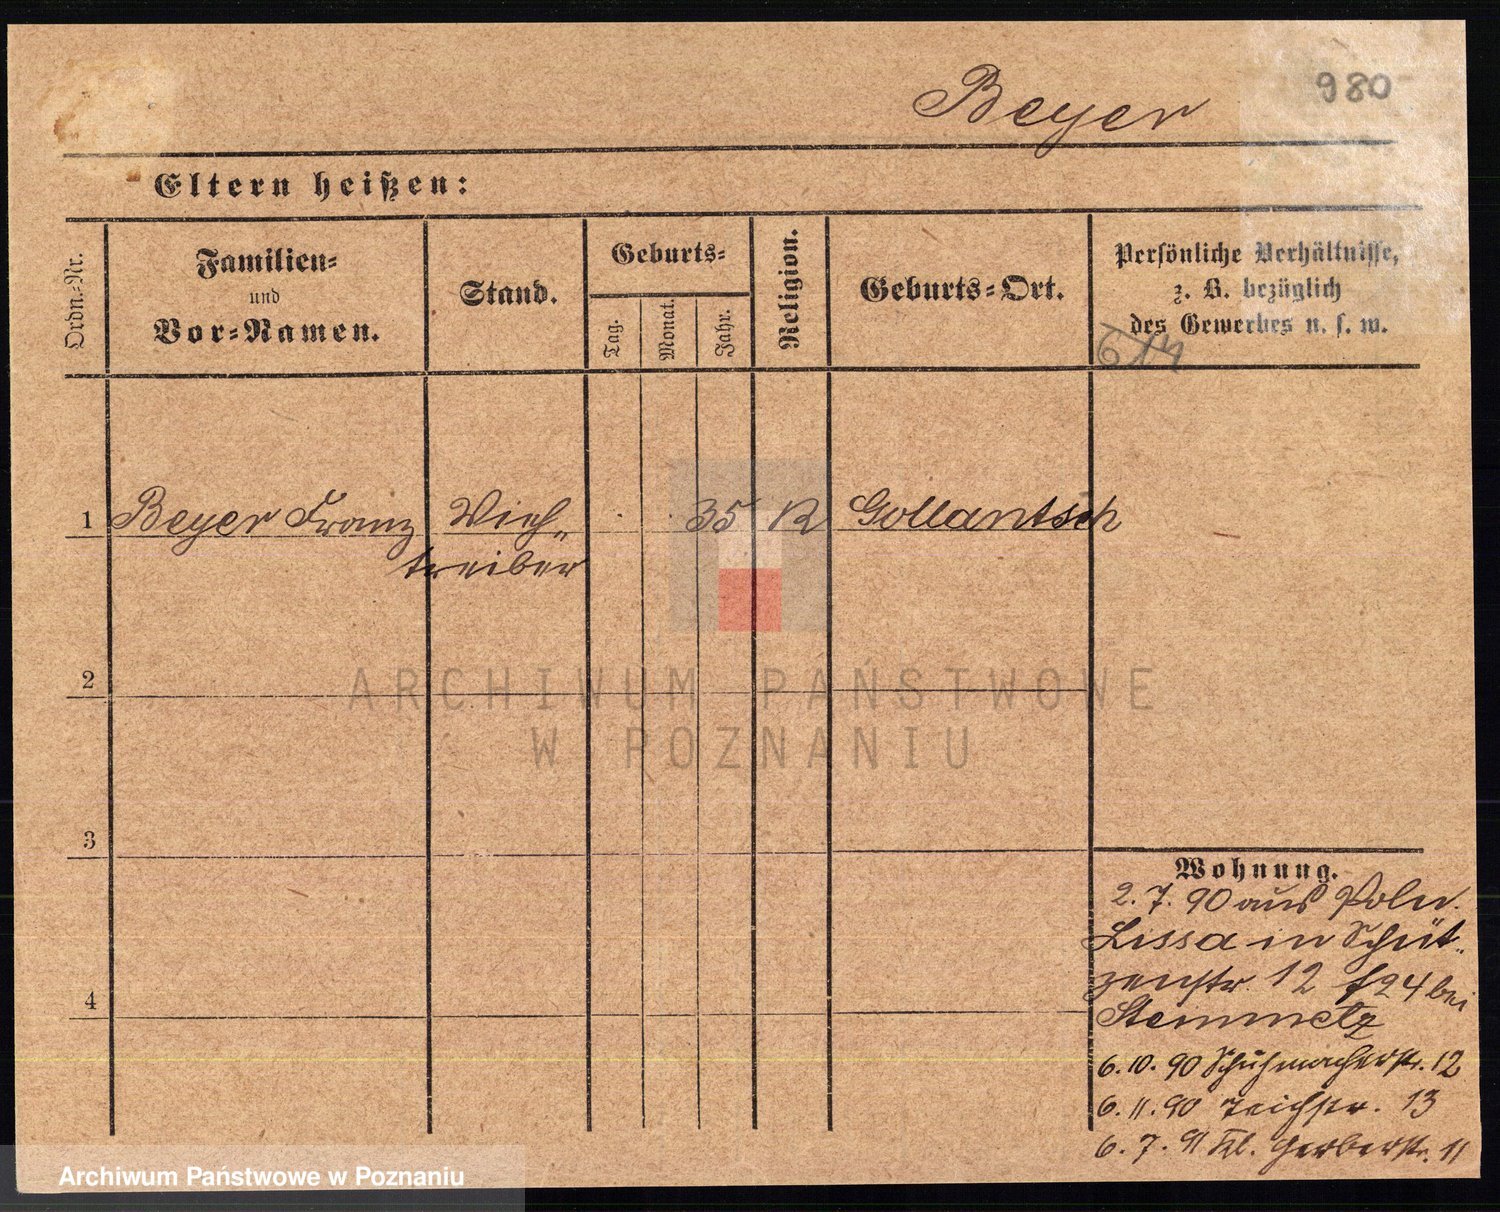 Beyer
980
Eltern heißen:
Ordn.-Nr.
Familien-
und
Vor-Namen.
Stand.
Geburts-
Tag.
Monat.
Jahr.
Religion.
Geburts-Ort.
Persönliche Verhältnisse,
z. B. bezüglich
des Gewerbes u. s. w.
1 Beyer Franz Vieh- 35 R Gollantsch
treiber
2
ARCHIWUM PAŃSTWOWE
W POZNANIU
3
Wohnung.
2. 7. 90 aus Poln.
Lissa in Schüt-
zenstr. 12 24 bei
4
Stemmetz
6. 10. 90 Schuhmacherstr. 12
6. 11. 90 Teichstr. 13
6. 7. 91 Kl. Gerberstr. 11
Archiwum Państwowe w Poznaniu